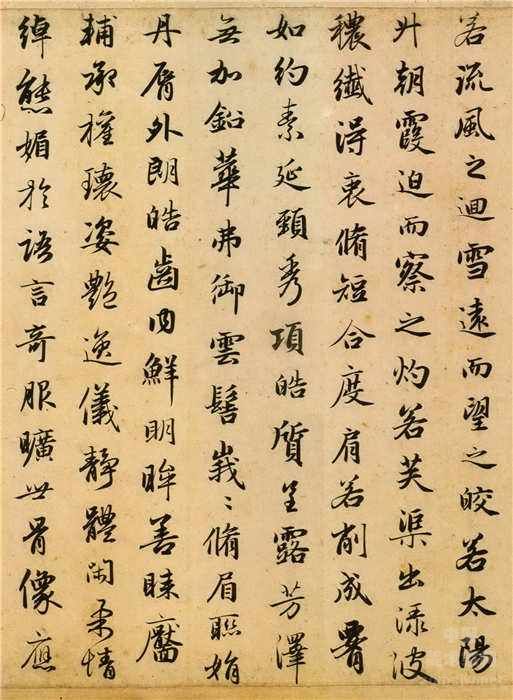 若流風之迴雪遠而望之皎若太陽
升朝霞迫而察之灼若芙渠出淥波
穠纖得衷脩短合度肩若削成腰
如約素延頸秀項皓質呈露芳澤
無加鉛華弗御雲髻峩〻脩眉聯娟
丹脣外朗皓齒内鮮明眸善睞靨
輔承權瓌姿艷逸儀靜體閑柔情
綽態媚於語言奇服曠世骨像應